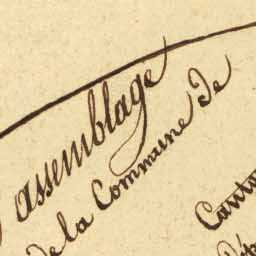 assemblage
de la Commune de